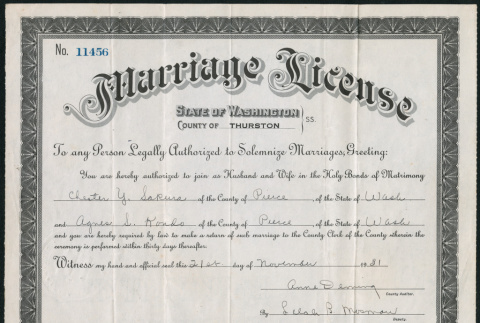 No. 11456
Marriage License
STATE OF WASHINGTON
COUNTY OF THURSTON } SS.
To any Person Legally Authorized to Solemnize Marriages, Greeting:
You are hereby authorized to join as Husband and Wife in the Holy Bonds of Matrimony
Chester Y. Sakura of the County of Pierce, of the State of Wash
and Agnes S. Kondo of the County of Pierce, of the State of Wash
and you are hereby required by law to make a return of such marriage to the County Clerk of the County wherein the
ceremony is performed within thirty days thereafter.
Witness my hand and official seal this 21st day of November
Anne Deming
County Auditor.
By B. Mormon
Deputy.